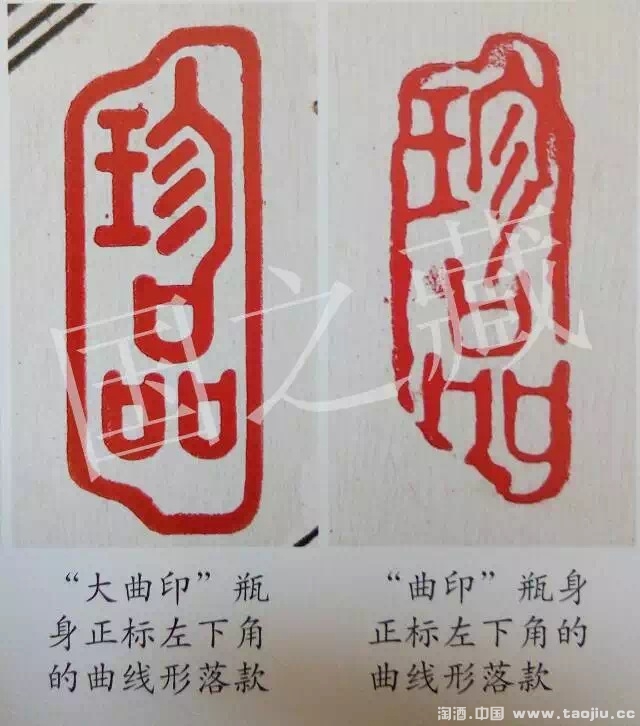 珍品
珍品
国之藏
“大曲印”瓶
身正标左下角
的曲线形落款
“曲印”瓶身
正标左下角的
曲线形落款
淘酒.中国 www.taojiu.cc